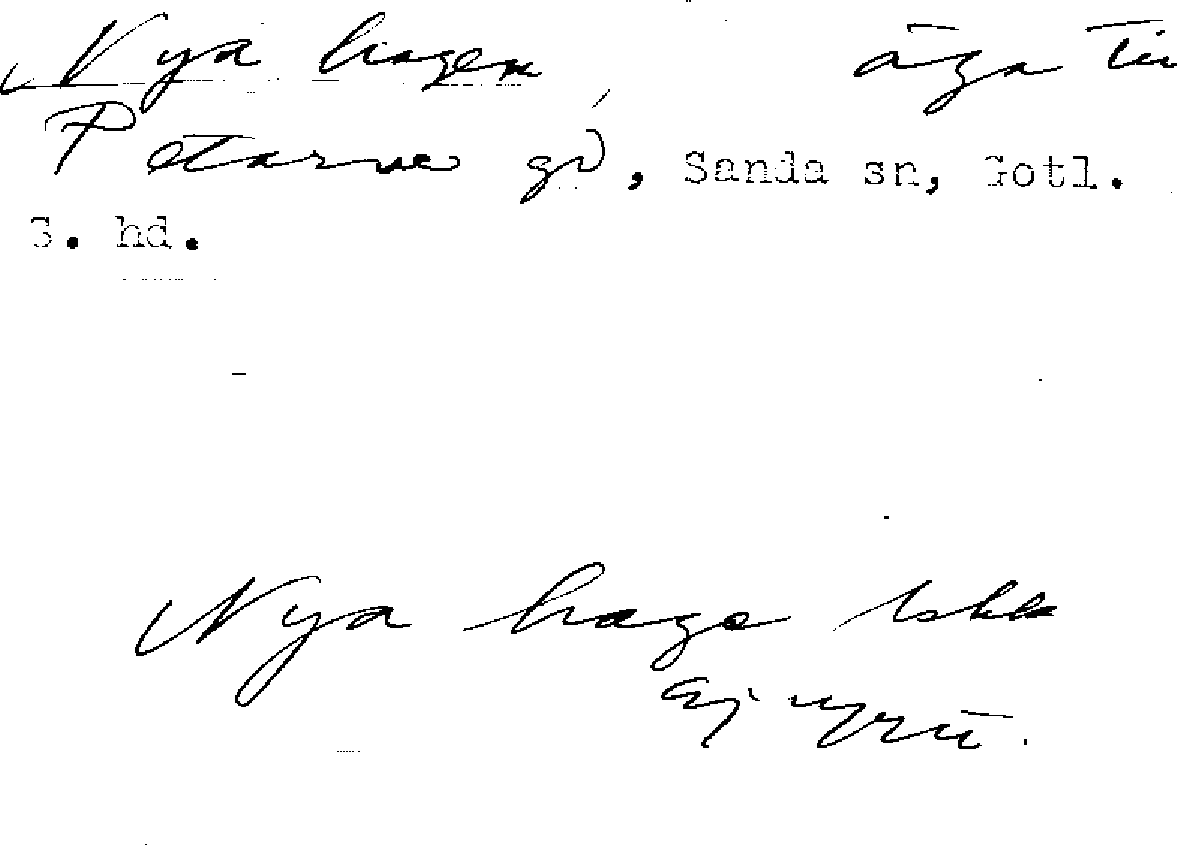 Nya hagen, äga till
Petarve gd, Sanda sn, Gotl.
S. hd.
Nya hage lskk
Ej uppr.